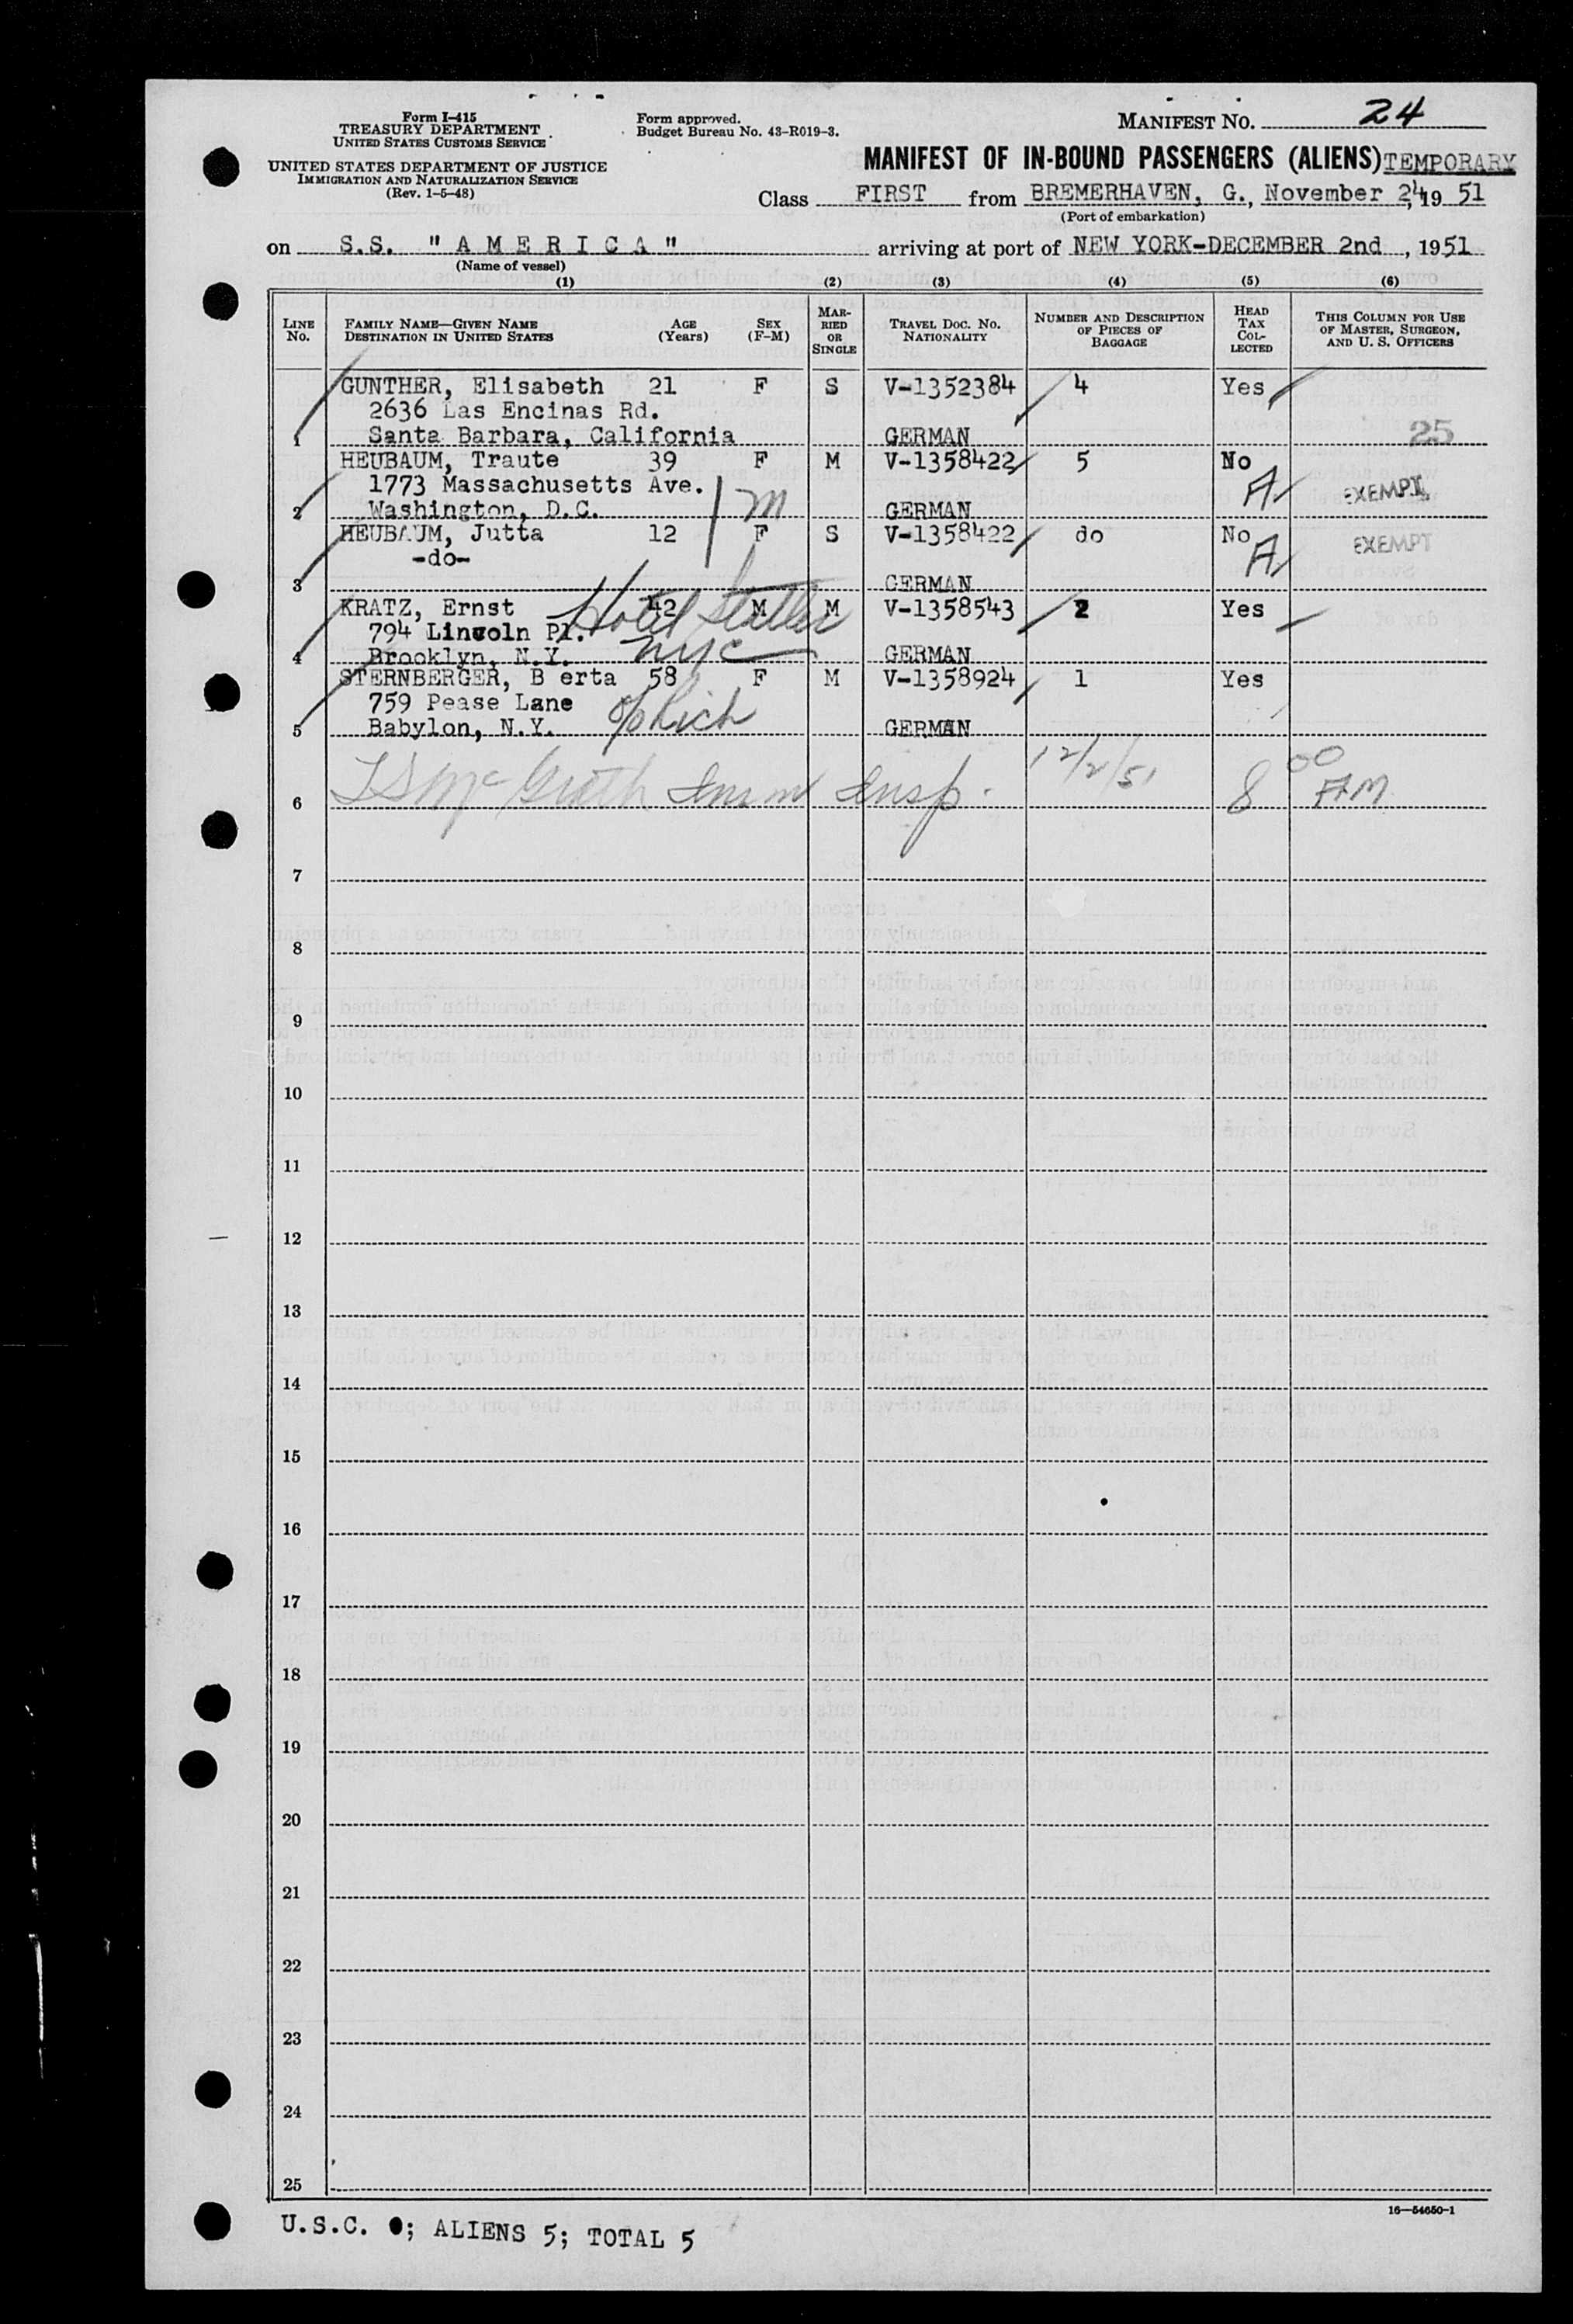 Form I-415
TREASURY DEPARTMENT
UNITED STATES CUSTOMS SERVICE
UNITED STATES DEPARTMENT OF JUSTICE
IMMIGRATION AND NATURALIZATION SERVICE
(Rev. 1-5-48)
Form approved.
Budget Bureau No. 43-R019-3.
MANIFEST NO. 24
MANIFEST OF IN-BOUND PASSENGERS (ALIENS) TEMPORARY
Class FIRST from BREMERHAVEN, G., November 24, 19 51
(Port of embarkation)
on S.S. "A M E R I C A" arriving at port of NEW YORK-DECEMBER 2nd, 1951
(Name of vessel)
(1) (2) (3) (4) (5) (6)
LINE NO.
FAMILY NAME—GIVEN NAME
DESTINATION IN UNITED STATES
AGE
(Years)
SEX
(F-M)
MARRIED OR SINGLE
TRAVEL DOC. NO.
NATIONALITY
NUMBER AND DESCRIPTION OF PIECES OF BAGGAGE
HEAD TAX COLLECTED
THIS COLUMN FOR USE OF MASTER, SURGEON, AND U. S. OFFICERS
GUNTHER, Elisabeth 21 F S V-1352384 4 Yes
2636 Las Encinas Rd.
1 Santa Barbara, California GERMAN 25
HEUBAUM, Traute 39 F M V-1358422 5 No
1773 Massachusetts Ave. M A EXEMPT
2 Washington, D.C. GERMAN
HEUBAUM, Jutta 12 F S V-1358422 do No
-do- A EXEMPT
3 GERMAN
KRATZ, Ernst 42 M M V-1358543 2 Yes
794 Lincoln Pl. Hotel Statler
4 Brooklyn, N.Y. NYC GERMAN
STERNBERGER, B erta 58 F M V-1358924 1 Yes
759 Pease Lane
5 Babylon, N.Y. c/o Rich GERMAN
6 McGrath Imm Insp. 12/2/51 8 00 AM
7
8
9
10
11
12
13
14
15
16
17
18
19
20
21
22
23
24
25
16—54650-1
U.S.C. 0; ALIENS 5; TOTAL 5